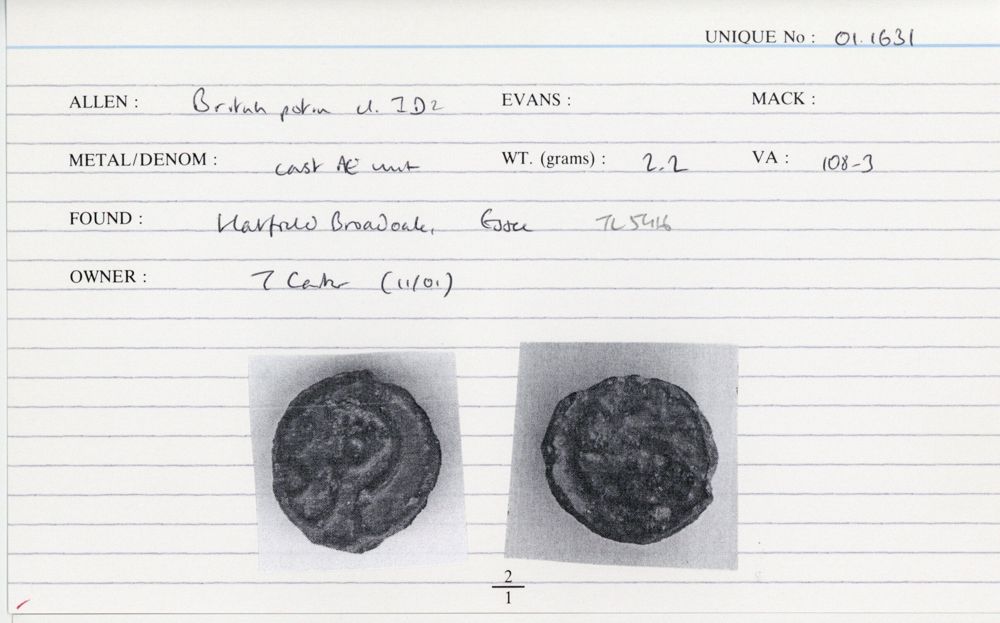 UNIQUE No : 01.1631
ALLEN : British potin cl. ID2 EVANS : MACK :
METAL/DENOM : cast AE unit WT. (grams) : 2.2 VA : 108-3
FOUND : Hatfield Broadoak, Essex TL5416
OWNER : T Carter (11/01)
2
1